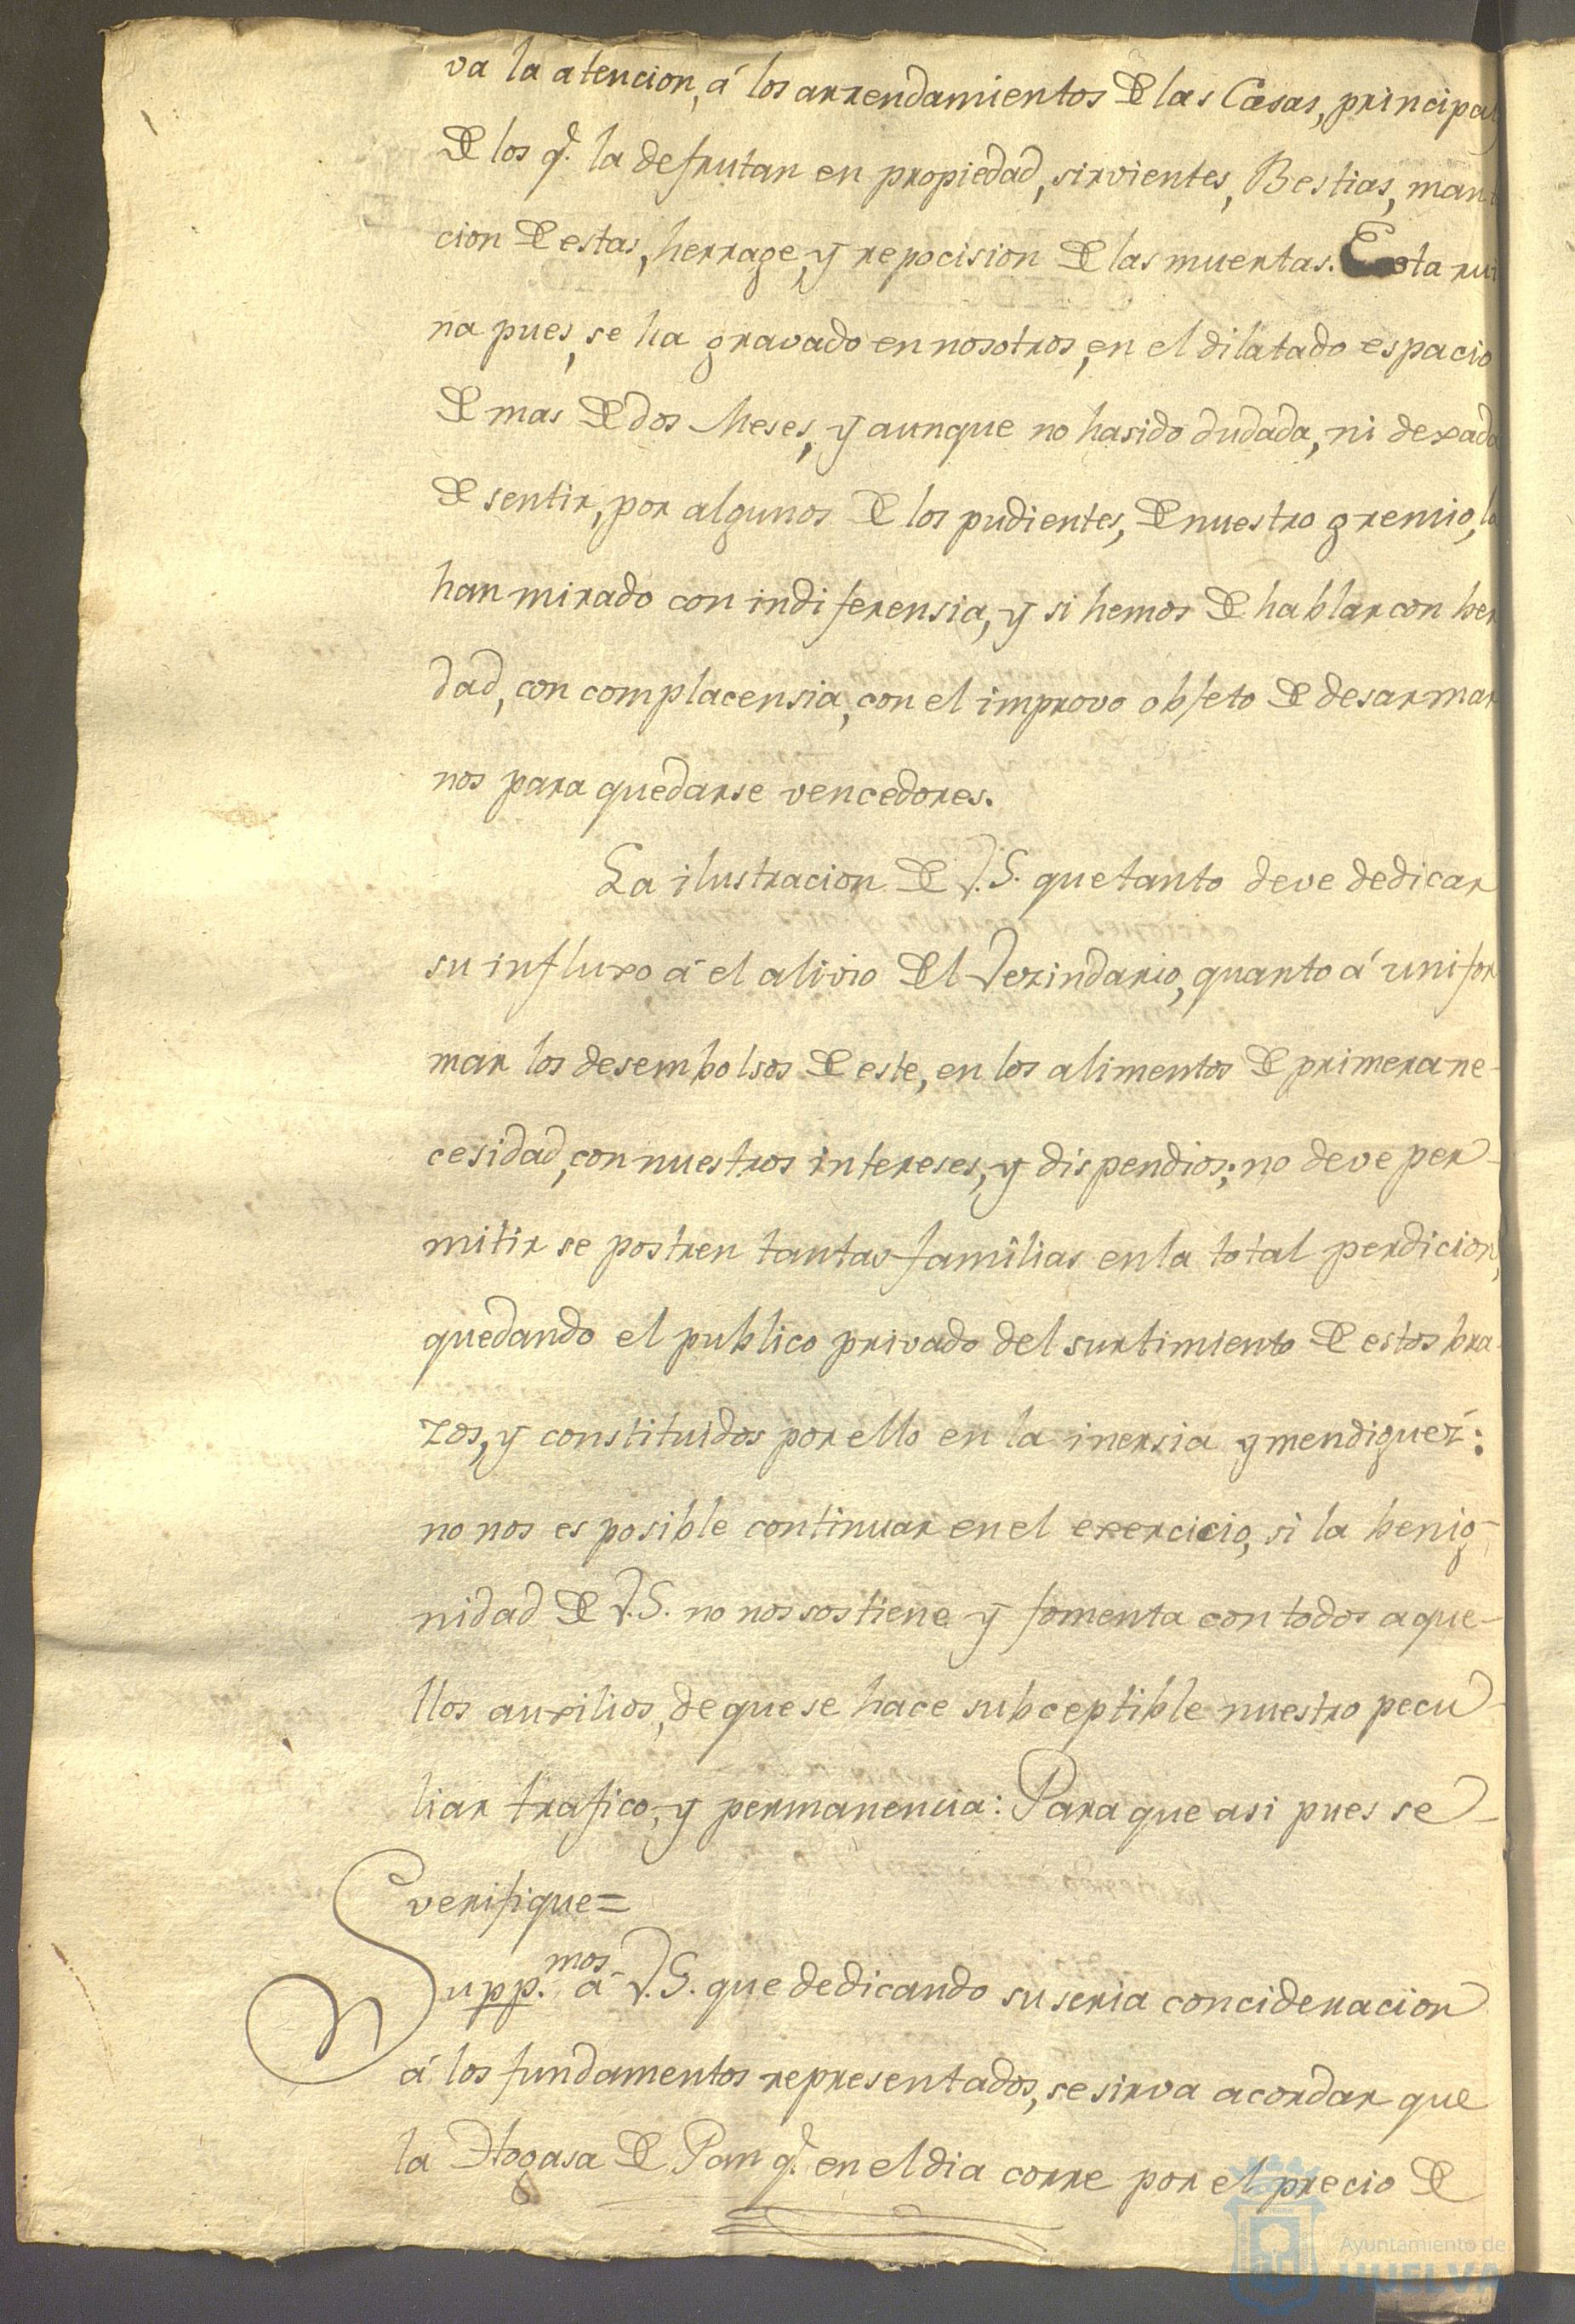 va la atencion, á los arrendamientos de las Casas, principal
de los q.^e la defrutan en propiedad, sirvientes, Bestias, man
cion de estas, herrage, y repocision de las muertas. Esta rui
na pues, se ha gravado en nosotros, en el dilatado espacio
de mas de dos Meses, y aunque no ha sido dudada, ni dexada
de sentir, por algunos de los pudientes, de nuestro gremio, la
han mirado con indiferensia, y si hemos de hablar con ber
dad, con complacensia, con el improvo objeto de desarmar
nos para quedarse vencedores.
La ilustracion de V.S. que tanto deve dedicar
su influxo á el alivio del Vezindario, quanto á unifor
mar los desembolsos de este, en los alimentos de primera ne-
cesidad, con nuestros intereses, y dispendios; no deve per-
mitir se postren tantas familias en la total perdicion,
quedando el publico privado del surtimiento de estos bra-
zos, y constituidos por ello en la inersia y mendiguez:
no nos es posible continuar en el exercicio, si la benig-
nidad de V.S. no nos sostiene y fomenta con todos aque-
llos auxilios, de que se hace subceptible nuestro pecu-
liar trafico, y permanencia: Para que asi pues se-
verifique=
Supp.^mos á V.S. que dedicando su seria concideracion
á los fundamentos representados, se sirva acordar que
la Hogasa de Pan q.^e en el dia corre por el precio de
Ayuntamiento de
HUELVA